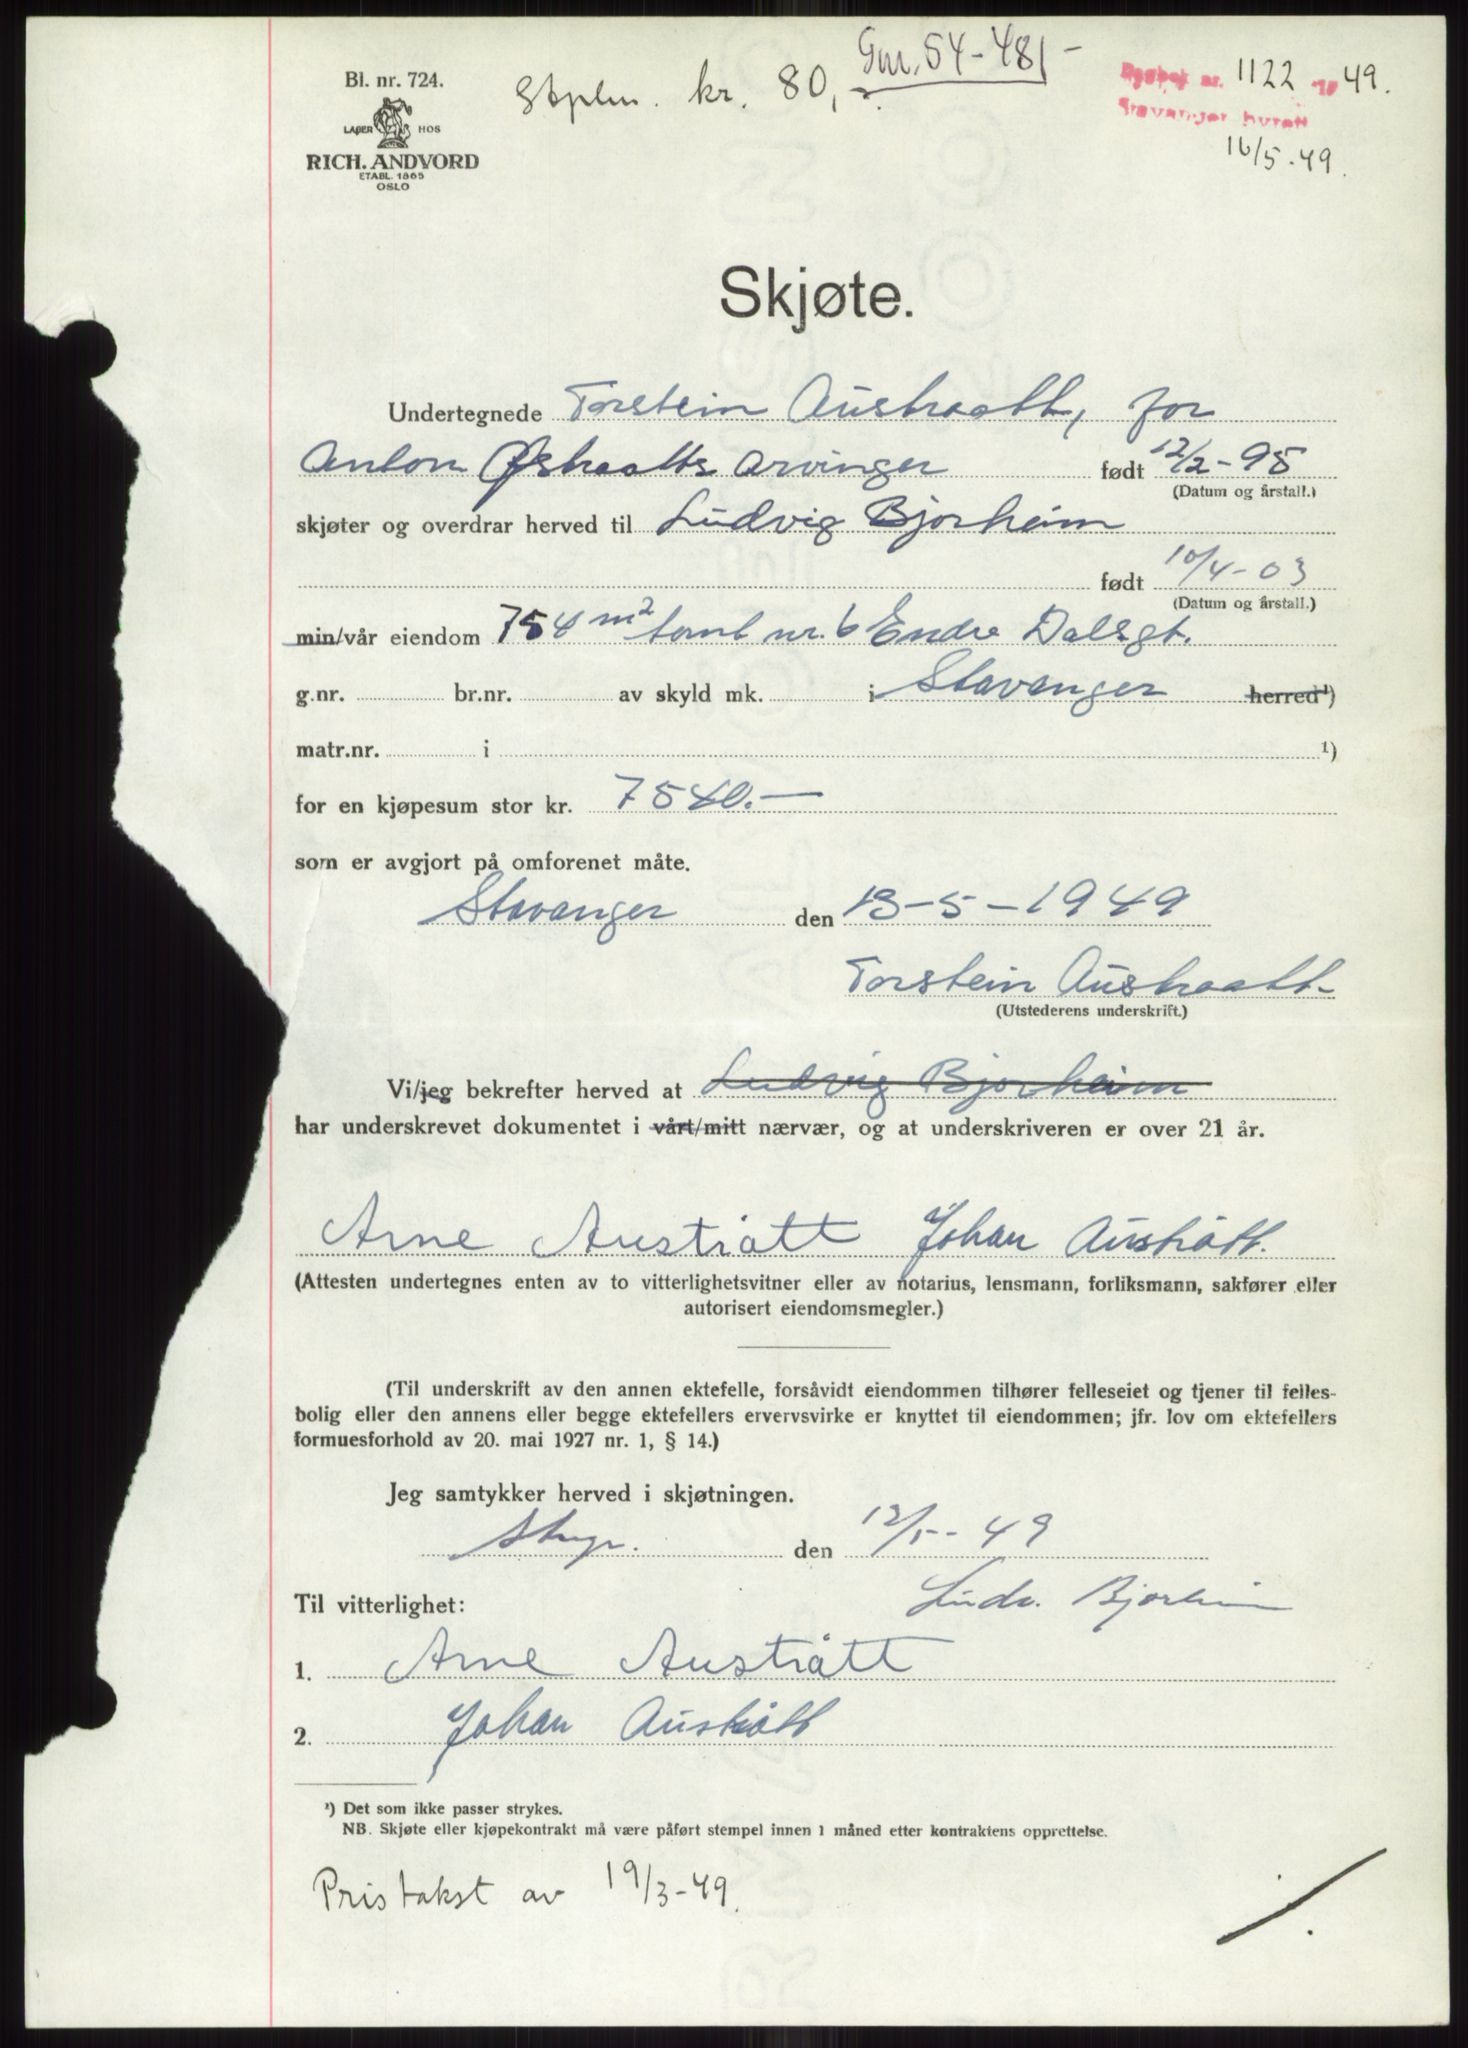 Gnr. 54-481
Bl. nr. 724.
Stplm. kr. 80,-.
Dagbok nr. 1122 19 49.
Stavanger byrett
16/5-49.
LAGER HOS
RICH. ANDVORD
ETABL. 1865
OSLO
Skjøte.
Undertegnede Torstein Austraatt, for
Anton Østraatts arvinger født 12/2-95
(Datum og årstall.)
skjøter og overdrar herved til Ludvig Bjorheim
født 10/4-03
(Datum og årstall.)
min/vår eiendom 754 m² tomt nr. 6 Endre Dalsgt.
g.nr. br.nr. av skyld mk. i Stavanger herred¹)
matr.nr. i ¹)
for en kjøpesum stor kr. 7540.—
som er avgjort på omforenet måte.
Stavanger den 13-5-1949
Torstein Austraatt
(Utstederens underskrift.)
Vi/jeg bekrefter herved at Ludvig Bjorheim
har underskrevet dokumentet i vårt/mitt nærvær, og at underskriveren er over 21 år.
Arne Austrått Johan Austrått.
(Attesten undertegnes enten av to vitterlighetsvitner eller av notarius, lensmann, forliksmann, sakfører eller
autorisert eiendomsmegler.)
(Til underskrift av den annen ektefelle, forsåvidt eiendommen tilhører felleseiet og tjener til felles-
bolig eller den annens eller begge ektefellers ervervsvirke er knyttet til eiendommen; jfr. lov om ektefellers
formuesforhold av 20. mai 1927 nr. 1, § 14.)
Jeg samtykker herved i skjøtningen.
den 12/5-49
Ludv. Bjorheim
Til vitterlighet:
1. Arne Austrått
2. Johan Austrått
¹) Det som ikke passer strykes.
NB. Skjøte eller kjøpekontrakt må være påført stempel innen 1 måned etter kontraktens opprettelse.
Pristakst av 19/3-49.